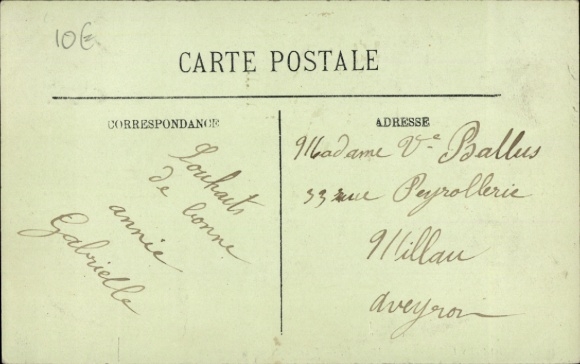 10€
CARTE POSTALE
CORRESPONDANCE
Souhaits
de bonne
annie
Gabrielle
ADRESSE
Madame Vᵉ Ballus
33 rue Peyrollerie
Millau
Aveyron